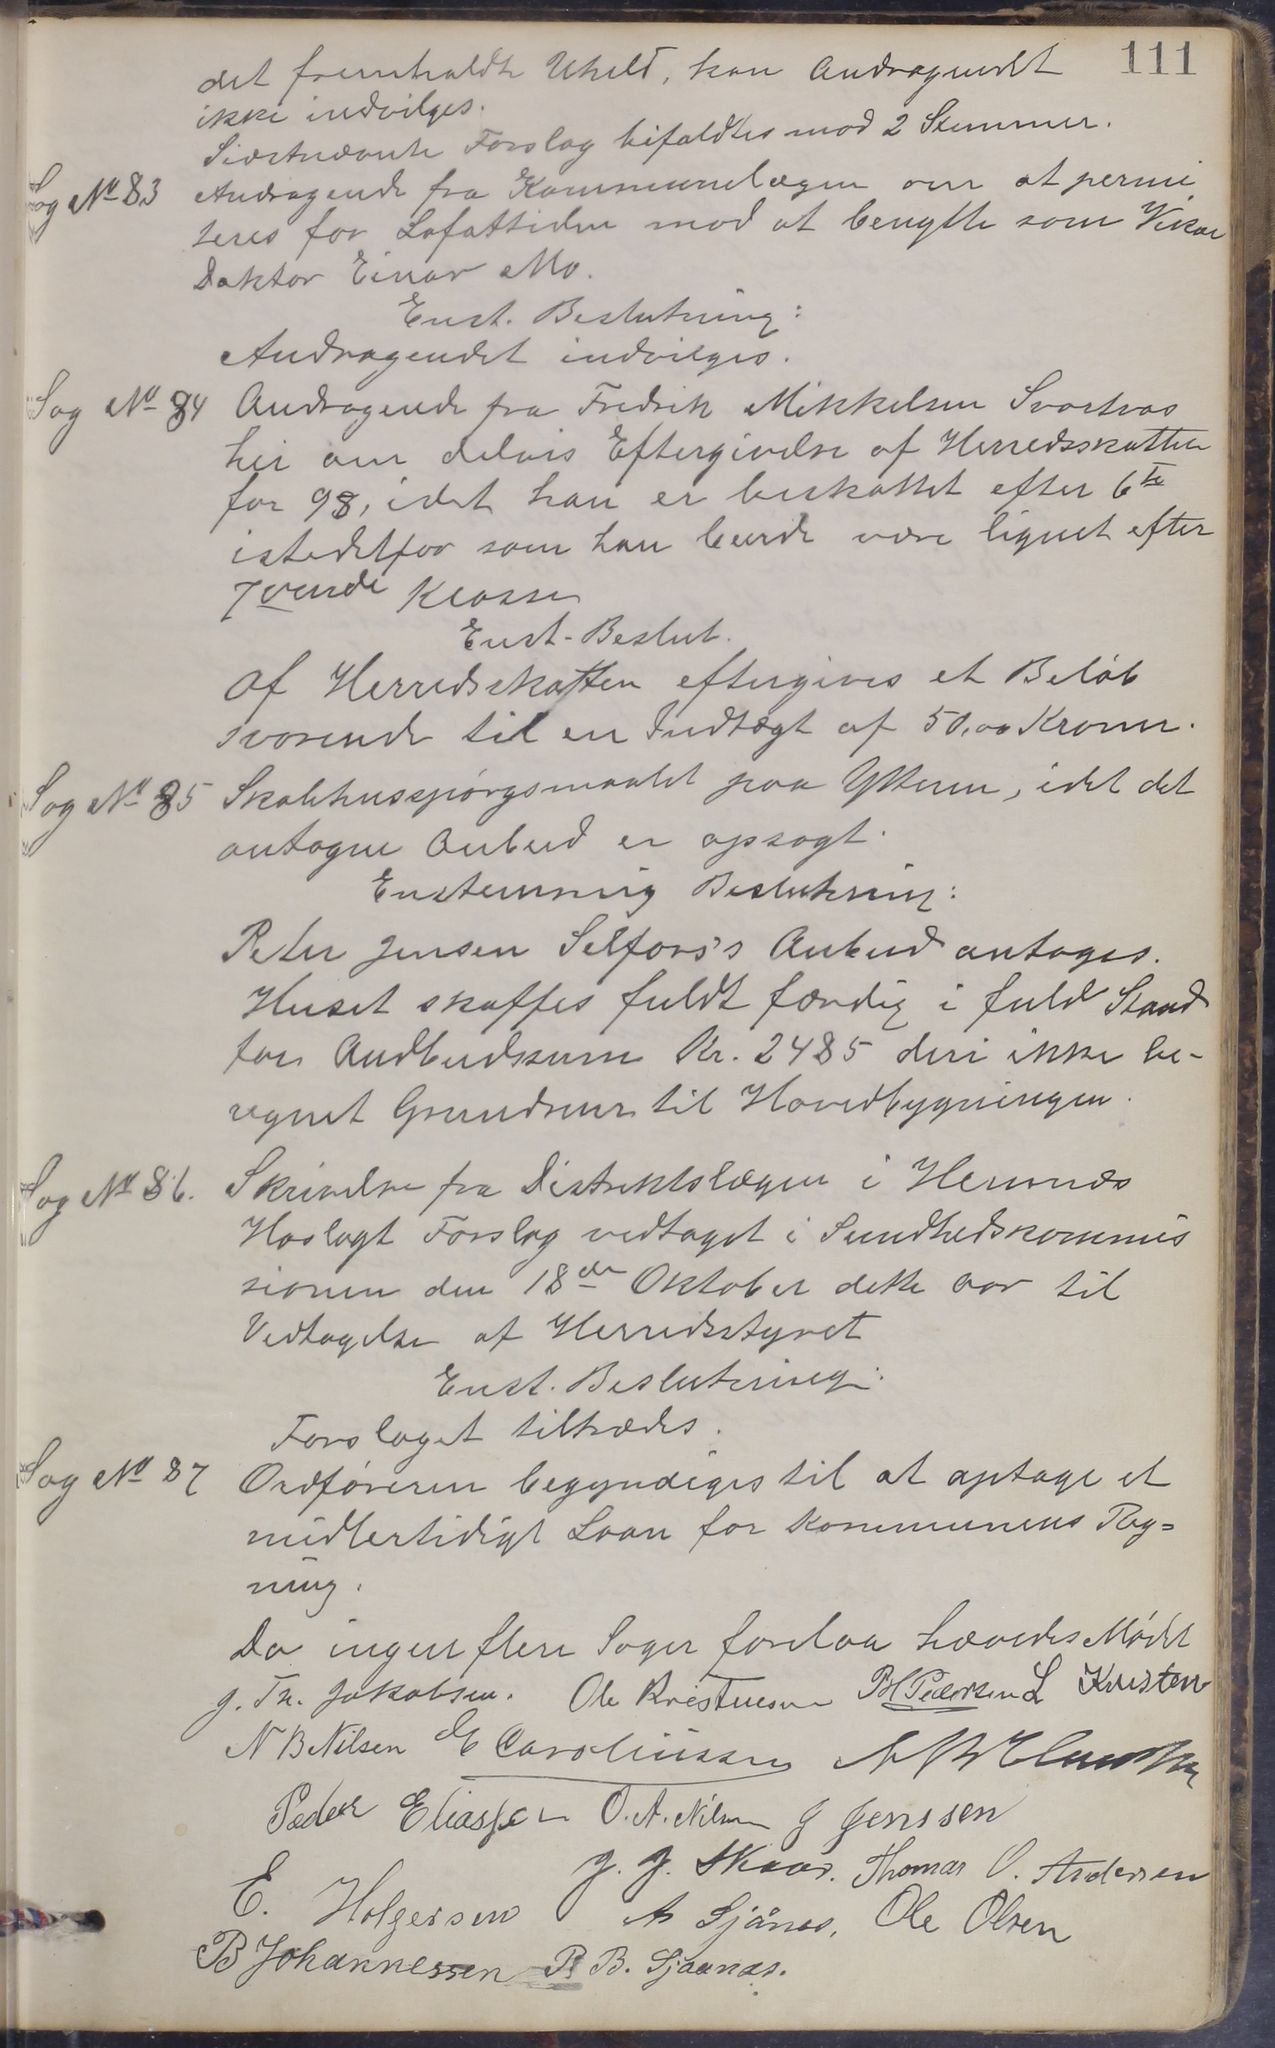 111
det fremholdte Uheld, kan Andragendet
ikke indvilges.
Sidstnævnte Forslag bifaldtes mod 2 Stemmer.
Sag No 83 Andragende fra Kommunelægen om at permi
teres for Lofottiden mod at benytte som Vikar
Doktor Einar Mo.
Enst. Beslutning:
Andragendet indvilges.
Sag No 84 Andragende fra Fredrik Mikkelsen Svartvas
her om delvis Eftergivelse af Herredsskatten
for 98, idet han er beskattet efter 6te
istedetfor som han burde være lignet efter
7vende Klasse
Enst. Beslut.
Af Herredsskatten eftergives et Beløb
svarende til en Indtægt af 50,00 Kroner.
Sag No 85 Skolehusspørgsmaalet paa Ytteren, idet det
antagne Anbud er opsagt.
Enstemmig Beslutning:
Peter Jensen Selfors's Anbud antages.
Huset skaffes fuldt færdig i fuld Stand
for Andbudssum Kr. 2485 deri ikke be-
regnet Grundmur til Hovedbygningen.
Sag No 86. Skrivelse fra Distriktslægen i Hemnes
Hoslagt Forslag vedtaget i Sundhedskommis
sionen den 18de Oktober dette Aar til
Vedtagelse af Herredsstyret
Enst. Beslutning:
Forslaget tiltrædes.
Sag No 87 Ordføreren begyndiges til at optage et
midlertidigt Laan for Kommunens Reg=
ning.
Da ingen flere Sager forelaa hævedes Mødet
J. Th. Jakobsen. Ole Kristensen P H Pedersen L Kristens
N B Nilsen E Caroliussen
Peder Eliassen O. A. Nilsen J Jenssen
J. J. Skaar. Thomas O. Andersen
E. Holgersen A Sjånes, Ole Olsen
B Johannessen P B. Sjaanæs.